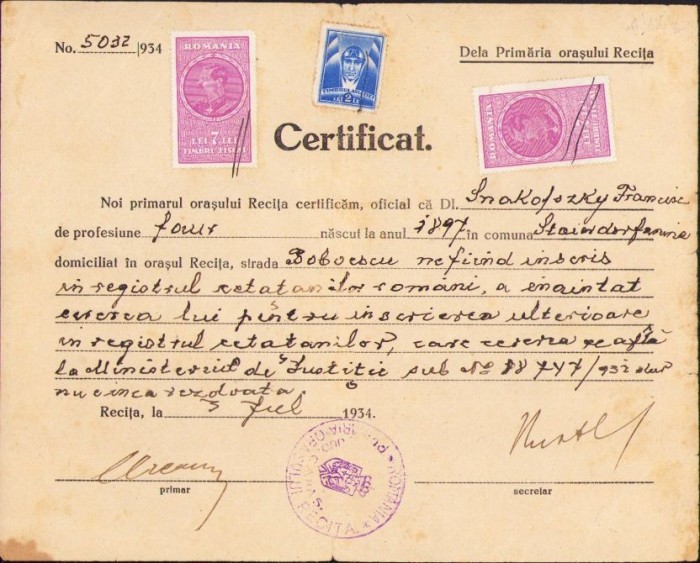 No. 5032 /934
Dela Primăria orașului Recița
ROMANIA
LEI 7 LEI
TIMBRU FISCAL
TIMBRUL AVIAȚIEI
LEI 2 LEI
ROMANIA
TIMBRU FISCAL
Certificat.
Noi primarul orașului Recița certificăm, oficial că Dl. Snakofszky Francisc
de profesiune faur născut la anul 1897 în comuna
domiciliat în orașul Recița, strada Bobocscu nefiind inscris
in registrul cetatanilor români, a enaintat
cererea lui pentru inscrierea ulterioare
in registrul cetatanilor, care cerere se află
la Ministerul de Justitie sub No 88747/932 dar
nu e inca rezolvata.
Recița, la 5 Jul 1934.
primar
secretar
ROMÂNIA
PRIMĂRIA ORAȘULUI
RECIȚA